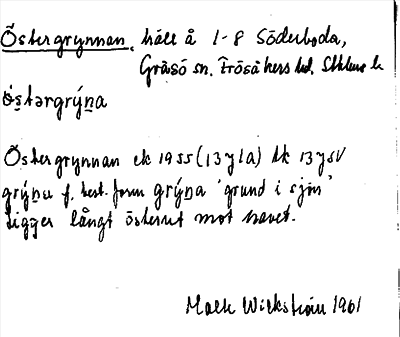 Östergrynnan, häll å 1-8 Söderboda,
Gräsö sn. Frösåkers hd, Sthlms l.
östərgrýn̲a
Östergrynnan ek 1955 (13yla) tk 13ySV
grýn̲ə f. best. form grýn̲a 'grund i sjön'
ligger långt österut mot havet.
Mats Wikström 1961